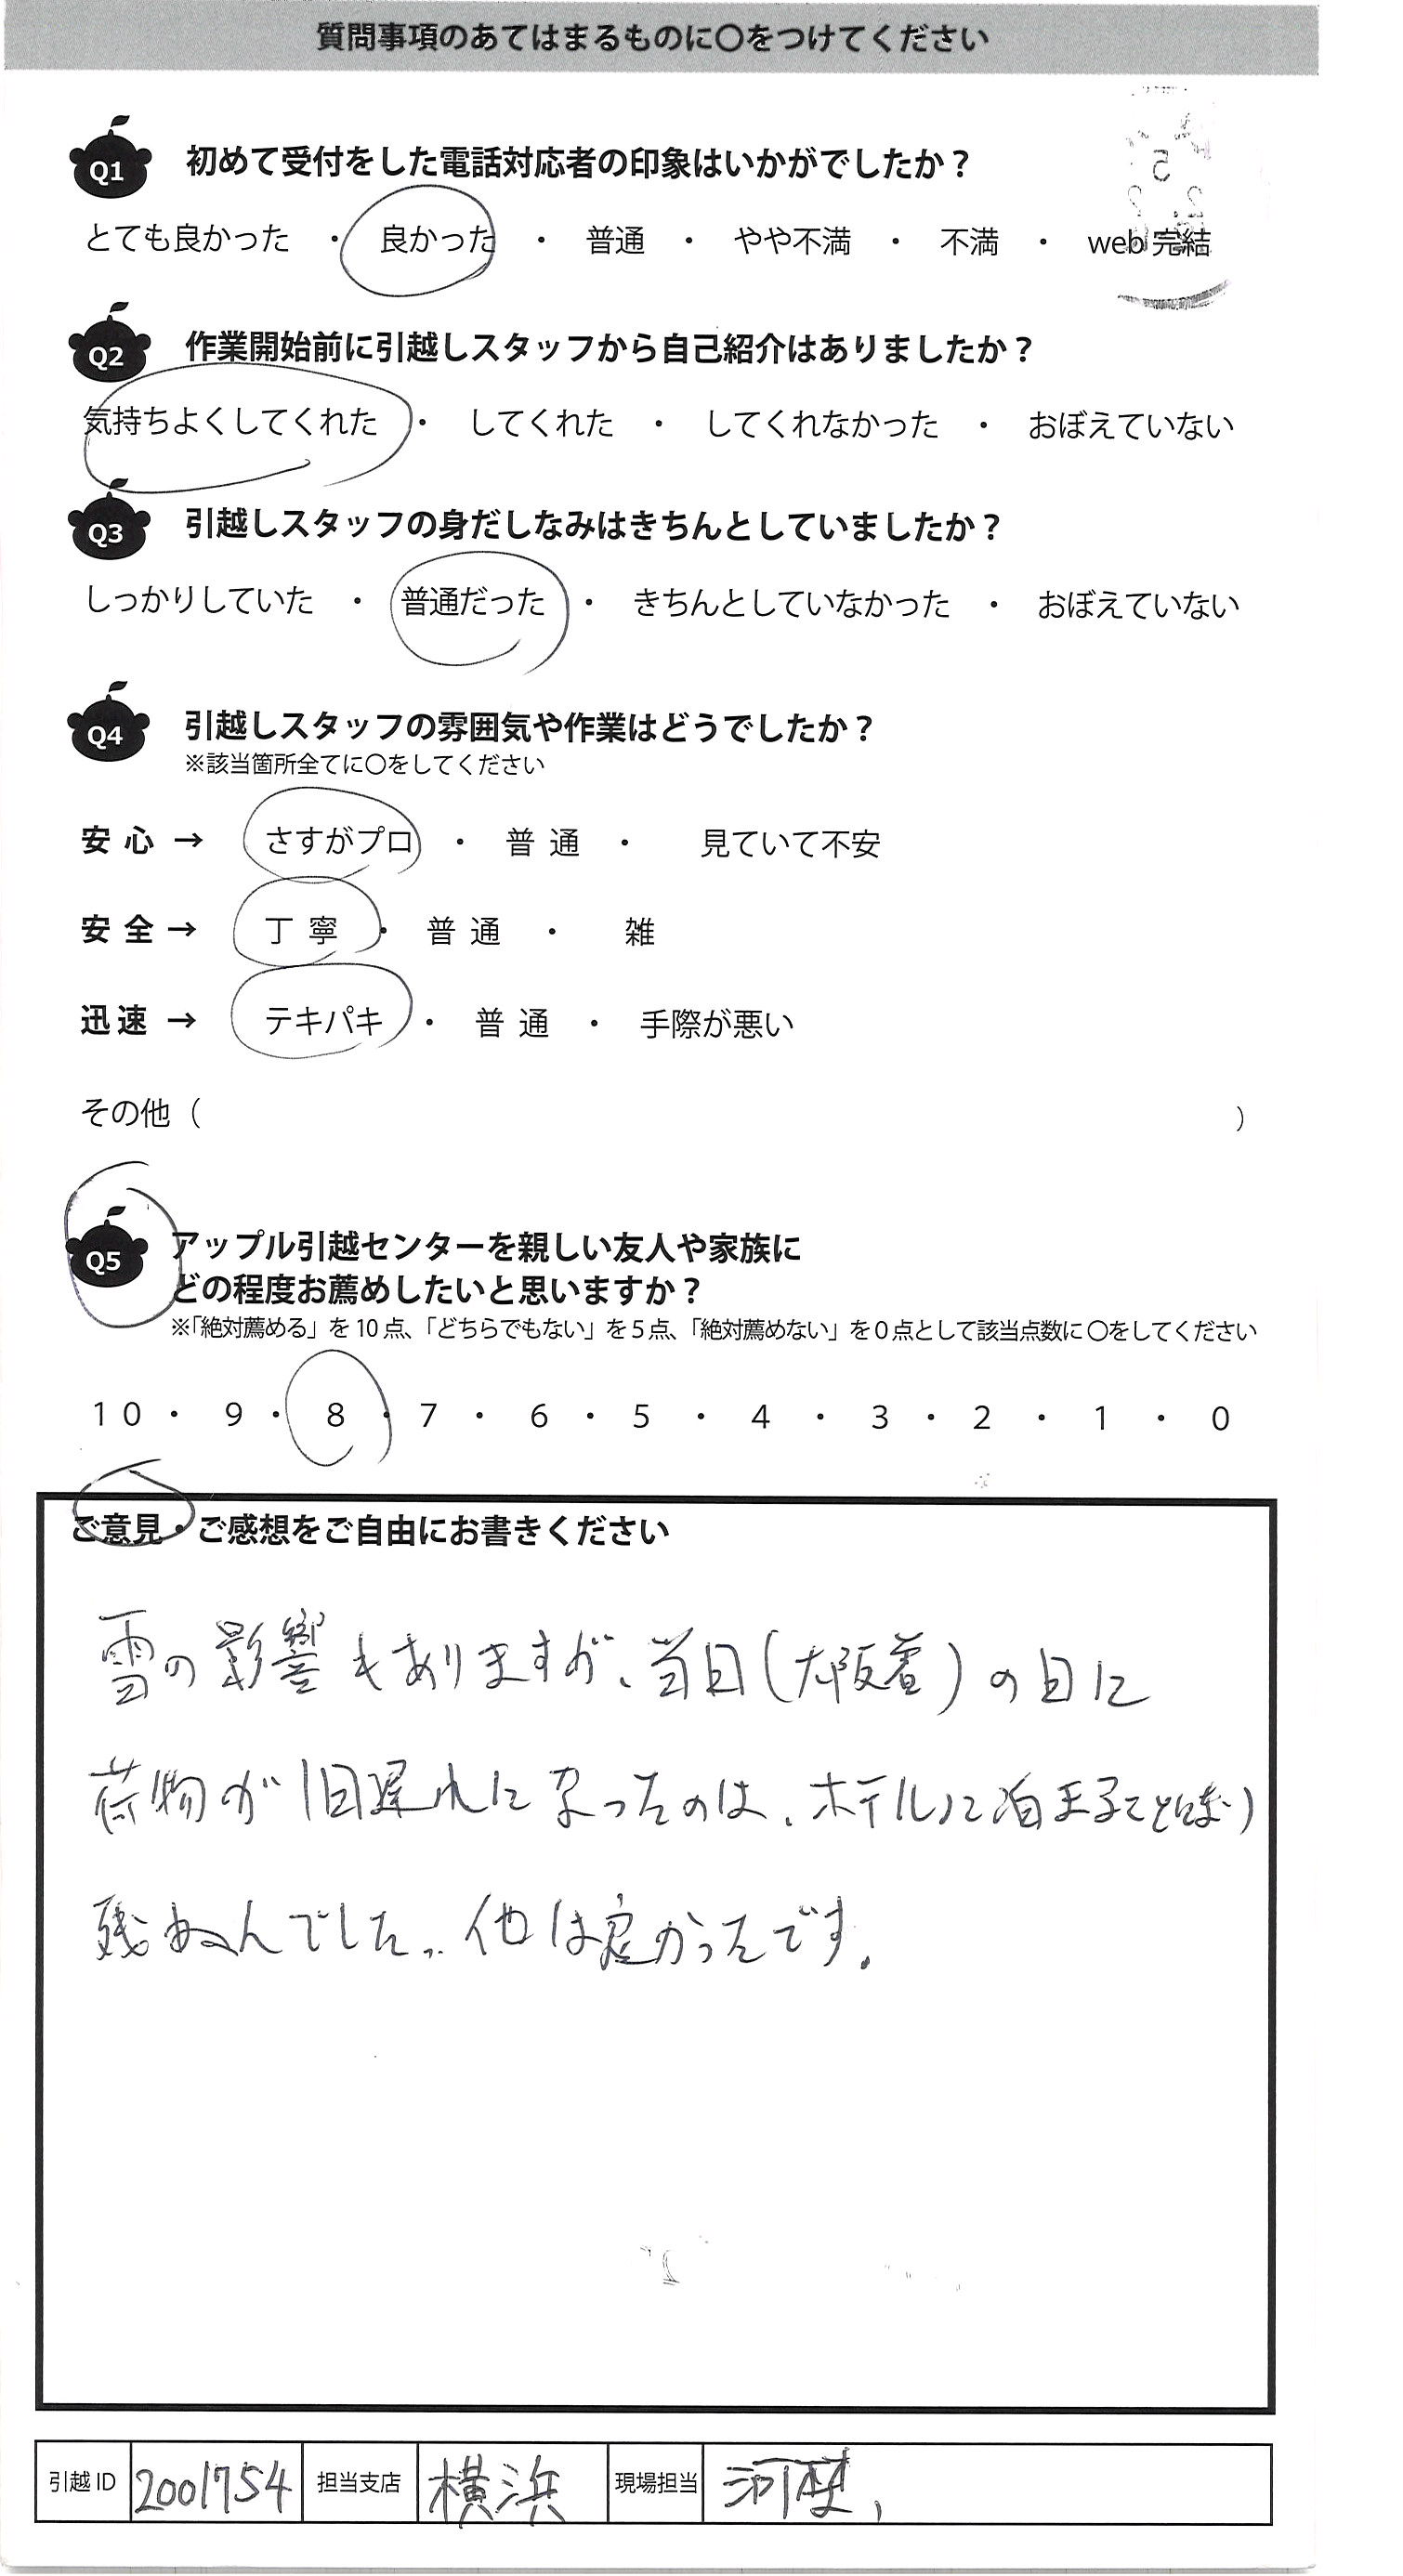 質問事項のあてはまるものに〇をつけてください
Q1 初めて受付をした電話対応者の印象はいかがでしたか？
とても良かった ・ 良かった ・ 普通 ・ やや不満 ・ 不満 ・ web 完結
Q2 作業開始前に引越しスタッフから自己紹介はありましたか？
気持ちよくしてくれた ・ してくれた ・ してくれなかった ・ おぼえていない
Q3 引越しスタッフの身だしなみはきちんとしていましたか？
しっかりしていた ・ 普通だった ・ きちんとしていなかった ・ おぼえていない
Q4 引越しスタッフの雰囲気や作業はどうでしたか？
※該当箇所全てに〇をしてください
安心 → さすがプロ ・ 普通 ・ 見ていて不安
安全 → 丁寧 ・ 普通 ・ 雑
迅速 → テキパキ ・ 普通 ・ 手際が悪い
その他（ ）
Q5 アップル引越センターを親しい友人や家族に
どの程度お薦めしたいと思いますか？
※「絶対薦める」を 10 点、「どちらでもない」を 5 点、「絶対薦めない」を 0 点として該当点数に 〇をしてください
10 ・ 9 ・ 8 ・ 7 ・ 6 ・ 5 ・ 4 ・ 3 ・ 2 ・ 1 ・ 0
ご意見・ご感想をご自由にお書きください
雪の影響もありますが、当日(大阪着)の日に
荷物が1日遅れになったのは、ホテルに泊まることになり
残ねんでした。他は良かったです。
引越 ID 2001754 担当支店 横浜 現場担当